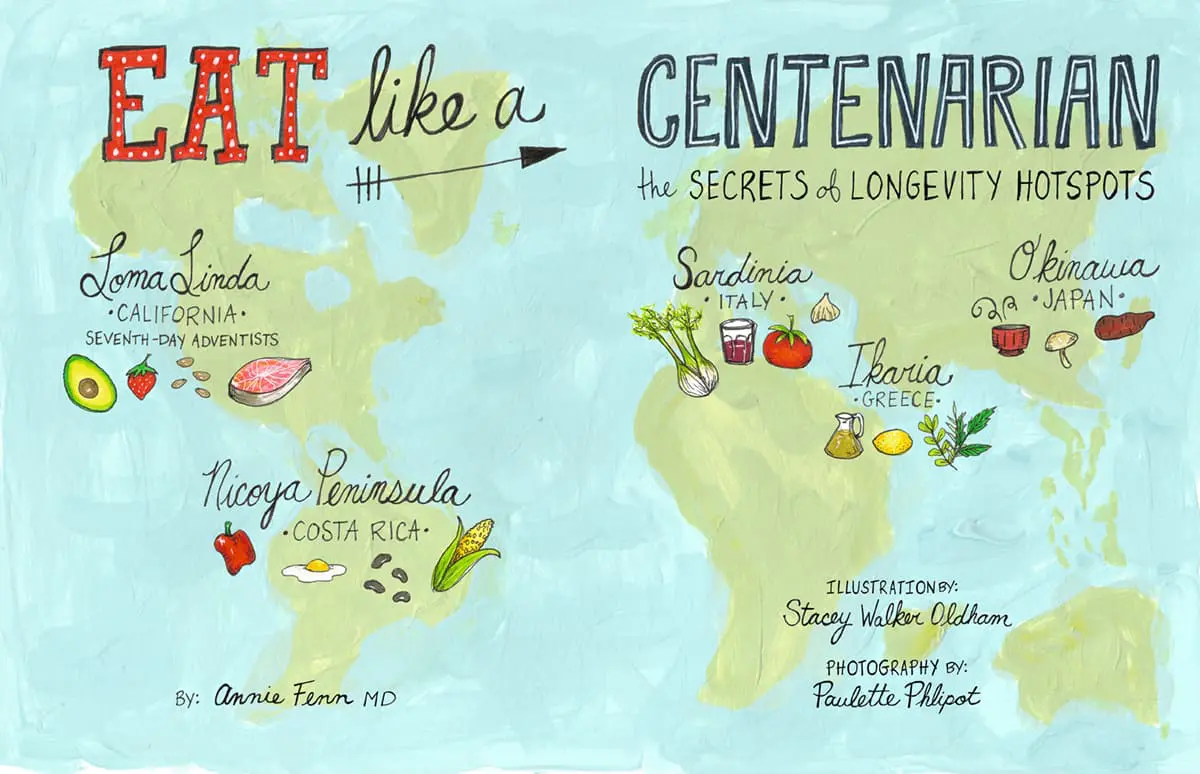 EAT like a
CENTENARIAN
the SECRETS of LONGEVITY HOTSPOTS
Loma Linda
• CALIFORNIA •
SEVENTH-DAY ADVENTISTS
Nicoya Peninsula
• COSTA RICA •
Sardinia
• ITALY •
Ikaria
• GREECE •
Okinawa
• JAPAN •
BY: Annie Fenn MD
ILLUSTRATION BY:
Stacey Walker Oldham
PHOTOGRAPHY BY:
Paulette Phlipot